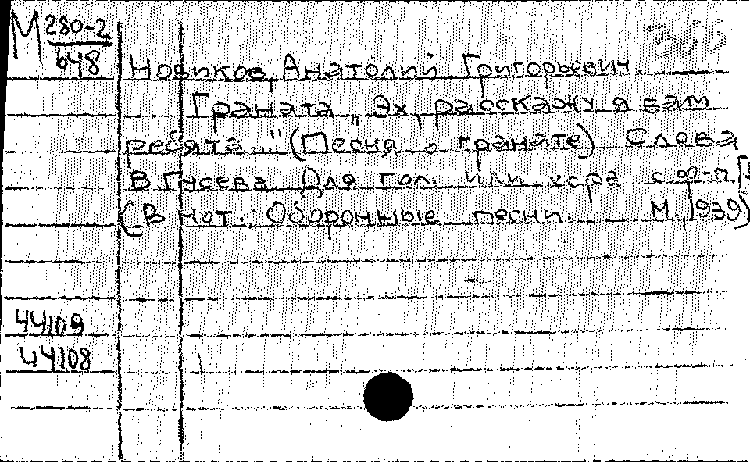 М 280-2
648
Новиков, Анатолий Григорьевич
Граната „Эх, расскажу я вам
ребята..." (Песня о гранате) Слова
В. Гусева Для гол. или хора с ф-п.
(В нот.: Оборонные песни. М. 1939)
44109
44108